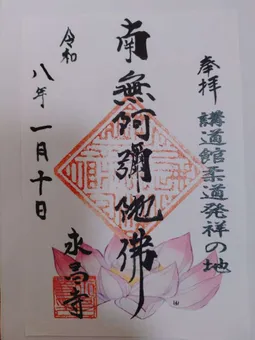 奉拝
講道館柔道発祥の地
南無阿彌陀佛
令和
八年
一月十日
永昌寺